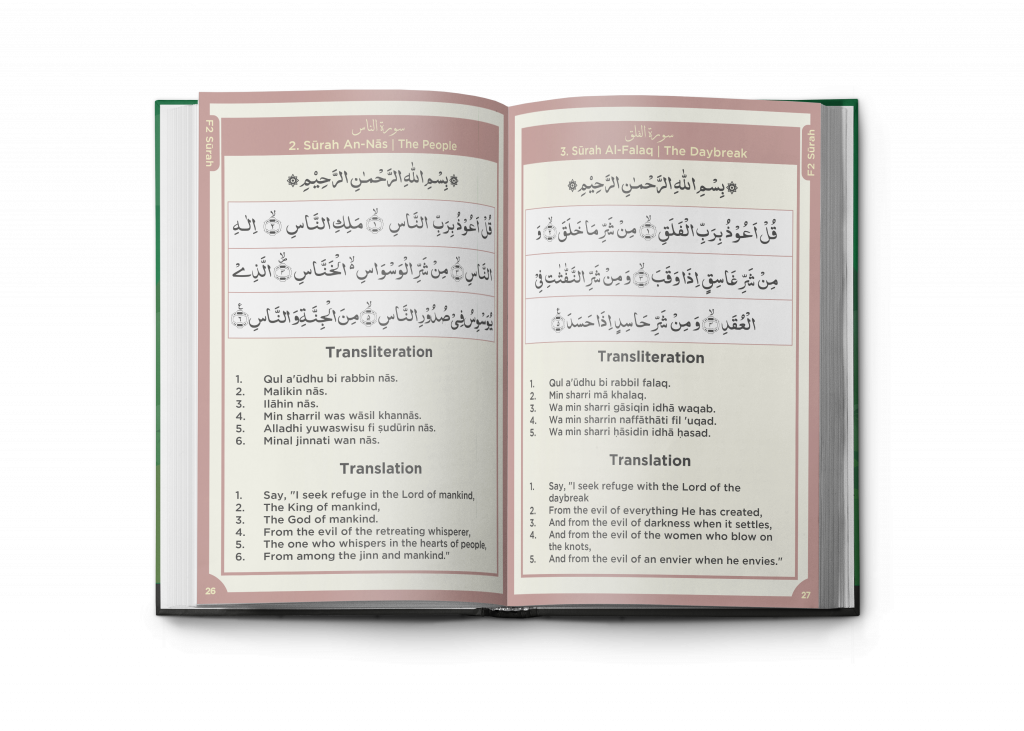 F2 Sūrah
سورة الناس
2. Sūrah An-Nās | The People
بِسْمِ اللّٰهِ الرَّحْمٰنِ الرَّحِيْمِ
قُلْ اَعُوْذُ بِرَبِّ النَّاسِ ۙ﴿١﴾ مَلِكِ النَّاسِ ۙ﴿٢﴾ اِلٰهِ
النَّاسِ ۙ﴿٣﴾ مِنْ شَرِّ الْوَسْوَاسِ ۙ۬ الْخَنَّاسِ ۙ﴿٤﴾ الَّذِيْ
يُوَسْوِسُ فِيْ صُدُوْرِ النَّاسِ ۙ﴿٥﴾ مِنَ الْجِنَّةِ وَالنَّاسِ ﴿٦﴾
Transliteration
1. Qul a'ūdhu bi rabbin nās.
2. Malikin nās.
3. Ilāhin nās.
4. Min sharril was wāsil khannās.
5. Alladhi yuwaswisu fi ṣudūrin nās.
6. Minal jinnati wan nās.
Translation
1. Say, "I seek refuge in the Lord of mankind,
2. The King of mankind,
3. The God of mankind.
4. From the evil of the retreating whisperer,
5. The one who whispers in the hearts of people,
6. From among the jinn and mankind."
26
F2 Sūrah
سورة الفلق
3. Sūrah Al-Falaq | The Daybreak
بِسْمِ اللّٰهِ الرَّحْمٰنِ الرَّحِيْمِ
قُلْ اَعُوْذُ بِرَبِّ الْفَلَقِ ۙ﴿١﴾ مِنْ شَرِّ مَا خَلَقَ ۙ﴿٢﴾ وَ
مِنْ شَرِّ غَاسِقٍ اِذَا وَقَبَ ۙ﴿٣﴾ وَ مِنْ شَرِّ النَّفّٰثٰتِ فِي
الْعُقَدِ ۙ﴿٤﴾ وَ مِنْ شَرِّ حَاسِدٍ اِذَا حَسَدَ ﴿٥﴾
Transliteration
1. Qul a'ūdhu bi rabbil falaq.
2. Min sharri mā khalaq.
3. Wa min sharri gāsiqin idhā waqab.
4. Wa min sharrin naffāthāti fil 'uqad.
5. Wa min sharri ḥāsidin idhā ḥasad.
Translation
1. Say, "I seek refuge with the Lord of the
daybreak
2. From the evil of everything He has created,
3. And from the evil of darkness when it settles,
4. And from the evil of the women who blow on
the knots,
5. And from the evil of an envier when he envies."
27